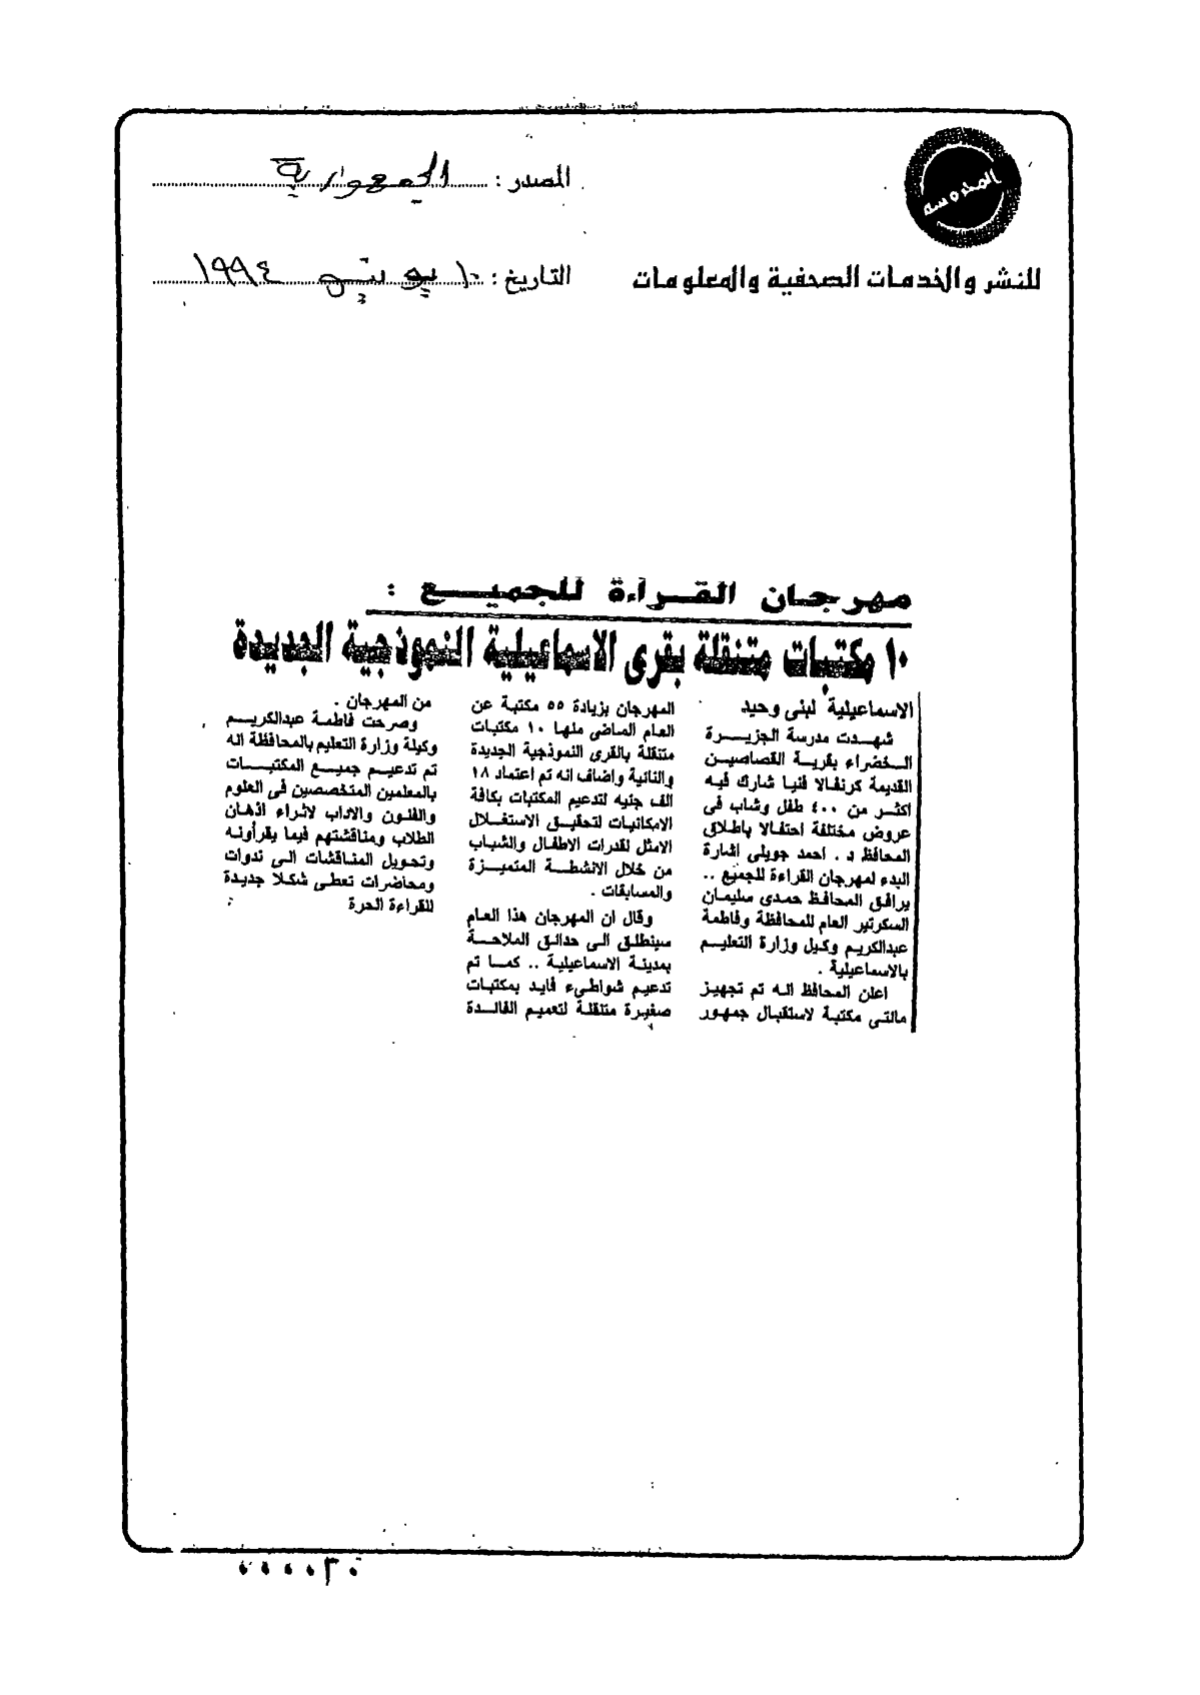 المحروسه
للنشر والخدمات الصحفية والمعلومات
المصدر : الجمهورية
التاريخ : ١٠ يونيو ١٩٩٤
مهرجان القراءة للجميع :
١٠ مكتبات متنقلة بقرى الاسماعيلية النموذجية الجديدة
الاسماعيلية لبنى وحيد
شهدت مدرسة الجزيرة
الخضراء بقرية القصاصين
القديمة كرنفالا فنيا شارك فيه
اكثر من ٤٠٠ طفل وشاب فى
عروض مختلفة احتفالا باطلاق
المحافظ د . احمد جويلى اشارة
البدء لمهرجان القراءة للجميع ..
يرافق المحافظ حمدى سليمان
السكرتير العام للمحافظة وفاطمة
عبدالكريم وكيل وزارة التعليم
بالاسماعيلية .
اعلن المحافظ انه تم تجهيز
مائتى مكتبة لاستقبال جمهور
المهرجان بزيادة ٥٥ مكتبة عن
العام الماضى منها ١٠ مكتبات
متنقلة بالقرى النموذجية الجديدة
والنائية واضاف انه تم اعتماد ١٨
الف جنيه لتدعيم المكتبات بكافة
الامكانيات لتحقيق الاستغلال
الامثل لقدرات الاطفال والشباب
من خلال الانشطة المتميزة
والمسابقات .
وقال ان المهرجان هذا العام
سينطلق الى حدائق الملاحة
بمدينة الاسماعيلية .. كما تم
تدعيم شواطىء فايد بمكتبات
صغيرة متنقلة لتعميم الفائدة
من المهرجان .
وصرحت فاطمة عبدالكريم
وكيلة وزارة التعليم بالمحافظة انه
تم تدعيم جميع المكتبات
بالمعلمين المتخصصين فى العلوم
والفنون والاداب لاثراء اذهان
الطلاب ومناقشتهم فيما يقرأونه
وتحويل المناقشات الى ندوات
ومحاضرات تعطى شكلا جديدة
للقراءة الحرة
٠٠٠٠٣٠